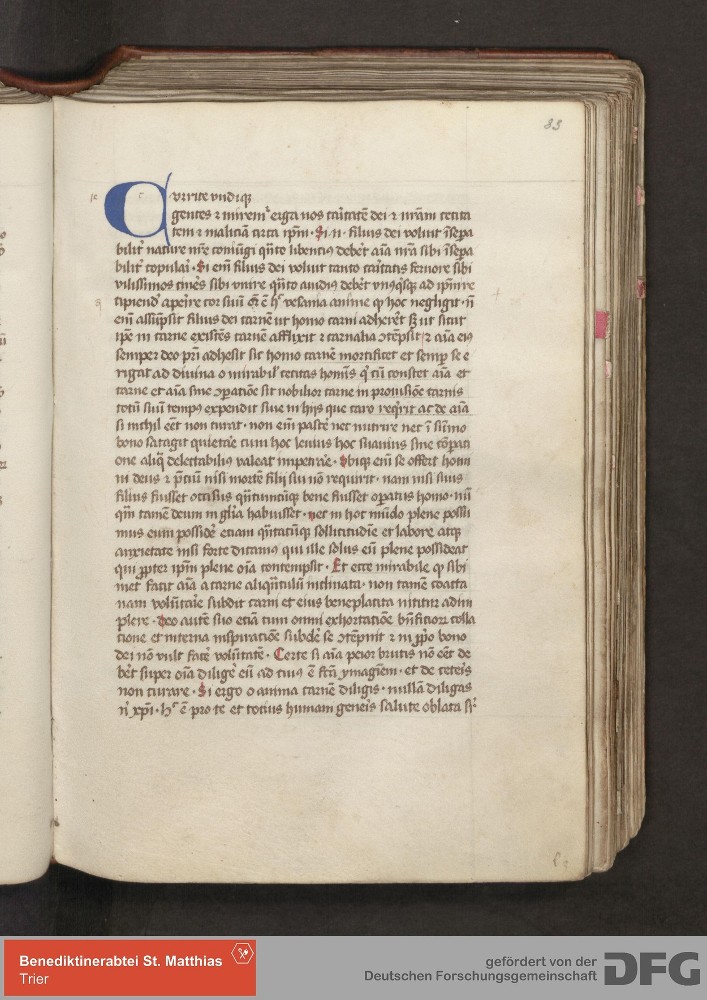 83
Currite vndiq
gentes ⁊ miremꝰ erga nos caritatē dei ⁊ nrām cecita
tem ⁊ maliciam circa ipm̄ · Si · n · filius dei voluit īsepa
bilit̄ nature nr̄e coniūgi qn̄to libentiꝰ deb&et aīa nr̄a sibi īsepa
bilit̄ copulai · Si em̄ filius dei voluit tanto caritatis feruore sibi
vilissimos cines sibi vnire qn̄to auidiꝰ debet vnꝰqsq ad ipm̄ re
cipiend apeīre cor suū ē hꝰ vesania anime q hoc negligit · n̄
em̄ assūpsit filius dei carnē ut homo carni adhereret sicut
ipe in carne existēs carnē afflixit ⁊ carnalia ꝯtēpsit ⁊ aīa eiꝰ
semper deo pri adhesit sic homo carnē mortificet et semp se e
rigat ad diuina o mirabil cecitas homis q cū constet aīa et
carne et aīa sine ꝯpatiōe sit nobilior carne in prouisiōe carnis
totū suū tempꝰ expendit siue in hijs que caro reqrit ac de aīa
si nichil eēt non curat · non em̄ pascēt nec nutrire nec ī sūmo
bono satagit quietare cum hoc leuius hoc suauius sine cōpati
one aliq delectabiliꝰ valeat impetrare · Vbique em̄ se offert homi
ni deus ⁊ pciū nisi mortē filij sui nō requirit · nam nisi suus
filius fuisset occisus qn̄tuncūque bene fuisset opatus homo · nū
qm̄ tamē deum in glīa habuisset · nec in hoc mūdo plene possu
mus eum possidē etiam qn̄tacūq sollicitudīe et labore atq
anxietate nisi forte dicamꝰ qui ille solus eū plene possideat
qui ꝓpter ipm̄ plene oīa contempsit · Et ecce mirabile q sibi
met facit aīa a carne aliqn̄tulū inclinata · non tamē coacta
nam volūtarie subdit carni et eius beneplacita nititur adim
plere · deo autē suo etiā cum omni exhortatiōe bn̄ficiorꝝ colla
tione et interna inspiratiōe subdē se ꝯtēpnit ⁊ in ꝓpō bono
dei nō vult facē volūtatē · Certe si aīa peior brutis nō eēt de
bēt super oīa diligē eū ad cuiꝰ ē fcā ymagiēm · et de ceteis
non curare · Si ergo o anima carnē diligis · nullā diligas
n̄ xp̄i · hꝰ ē pro te et tocius humani geneis salute oblata
Benediktinerabtei St. Matthias
Trier
gefördert von der
Deutschen Forschungsgemeinschaft
DFG